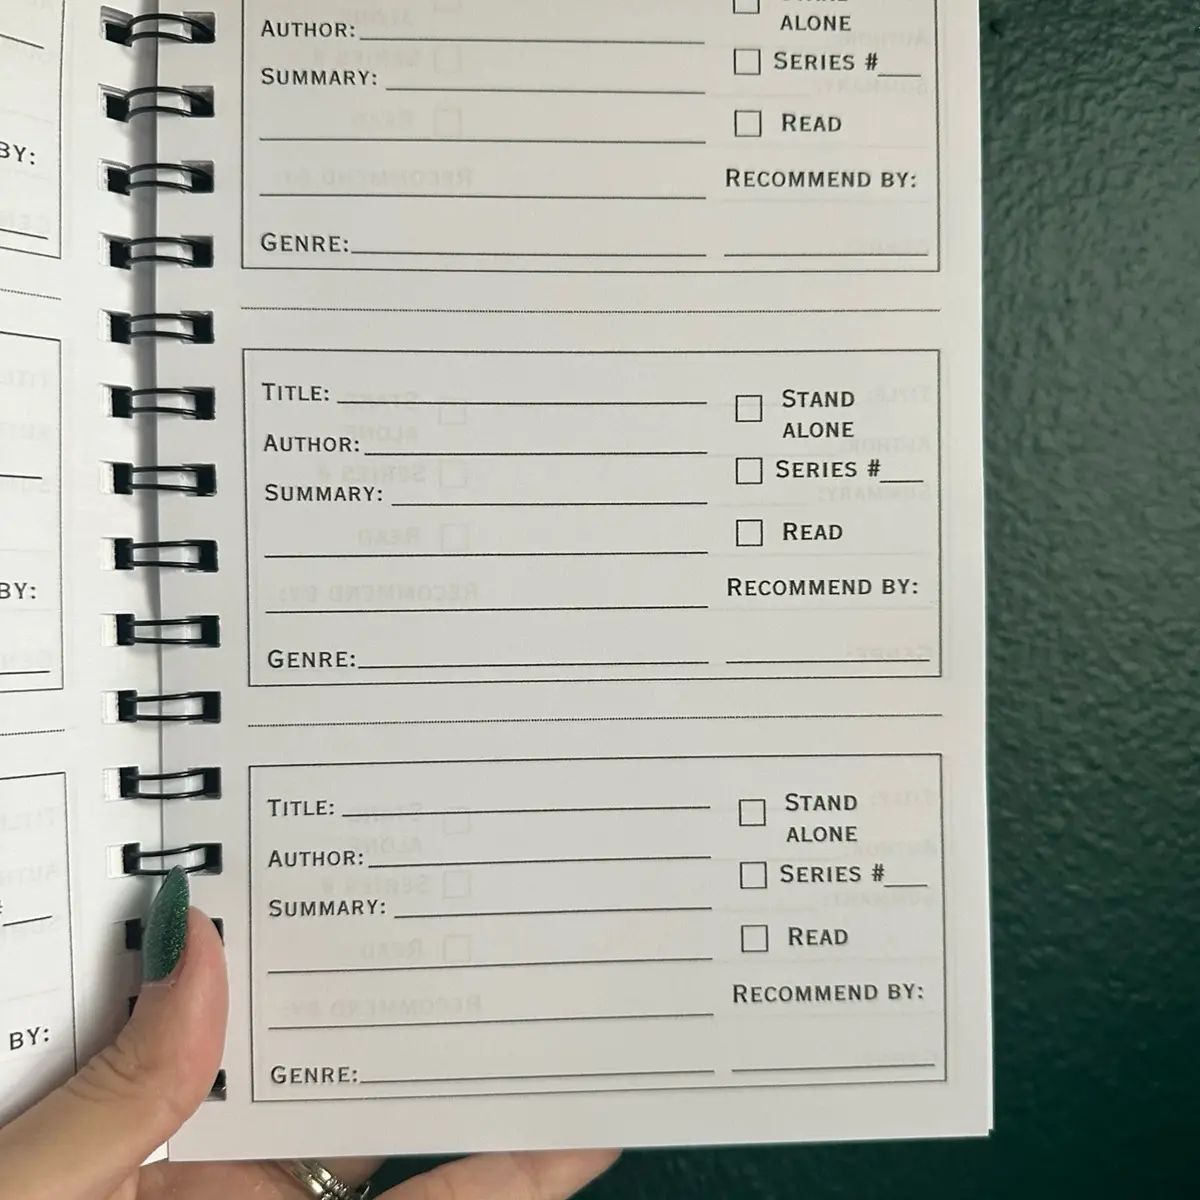 ALONE
AUTHOR:
SERIES #
SUMMARY:
READ
RECOMMEND BY:
GENRE:
TITLE:
STAND
ALONE
AUTHOR:
SERIES #
SUMMARY:
READ
RECOMMEND BY:
GENRE:
TITLE:
STAND
ALONE
AUTHOR:
SERIES #
SUMMARY:
READ
RECOMMEND BY:
GENRE:
BY:
BY:
BY: